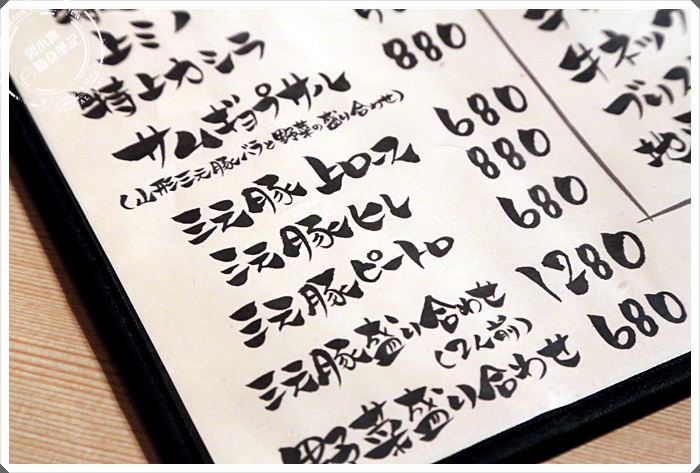 上ミノ
特上カシラ
サムギョプサル 880
(山形三元豚バラと野菜の盛り合わせ)
三元豚 上ロース 680
三元豚ヒレ 880
三元豚ピートロ 680
三元豚盛り合わせ 1280
(2人前)
野菜盛り合わせ 680
牛ネック
ブリス